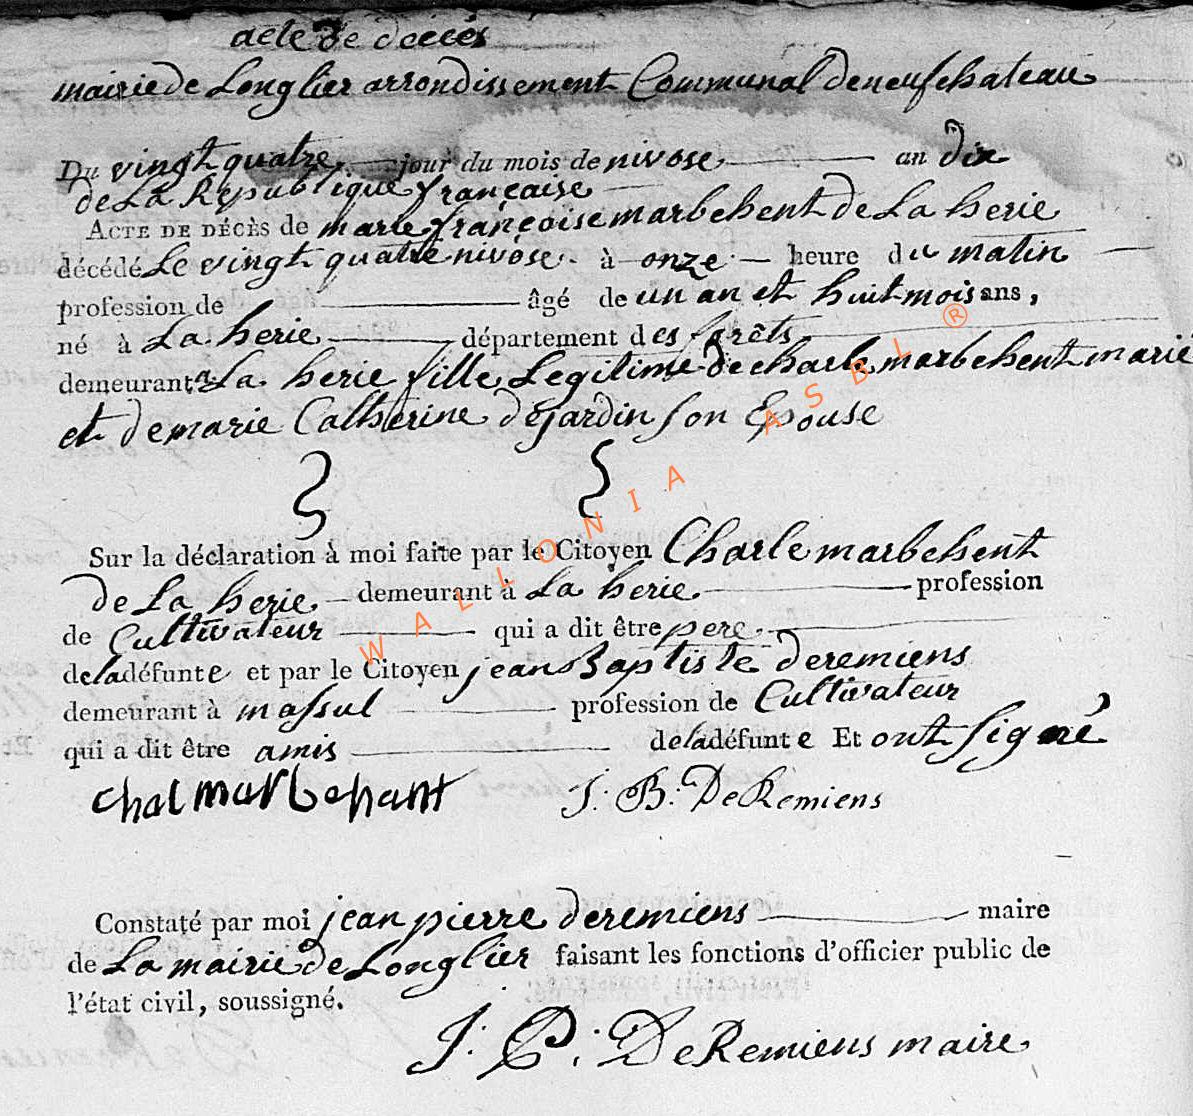 acte de decès
mairie de Longlier arrondissement Communal de neufchateau
Du vingt quatre jour du mois de nivose an dix
de La Republique française
ACTE DE DÉCÈS de marie françoise marbehent de La herie
décédé Le vingt quatre nivôse à onze heure du matin
profession de âgé de un an et huit mois ans,
né à La herie département des forêts
demeurant a La herie fille Legitime de charle marbehent marié
et de marie Catherine dejardin son Epouse
Sur la déclaration à moi faite par le Citoyen Charle marbehent
de La herie demeurant à La herie profession
de Cultivateur qui a dit être pere
de la défunte et par le Citoyen jean Baptiste deremiens
demeurant à massul profession de Cultivateur
qui a dit être amis de la défunte Et ont signé
chal marbehant J: B: DeRemiens
Constaté par moi jean pierre deremiens maire
de La mairie de Longlier faisant les fonctions d'officier public de
l'état civil, soussigné.
J: P: DeRemiens maire
WALLONIA ASBL ®